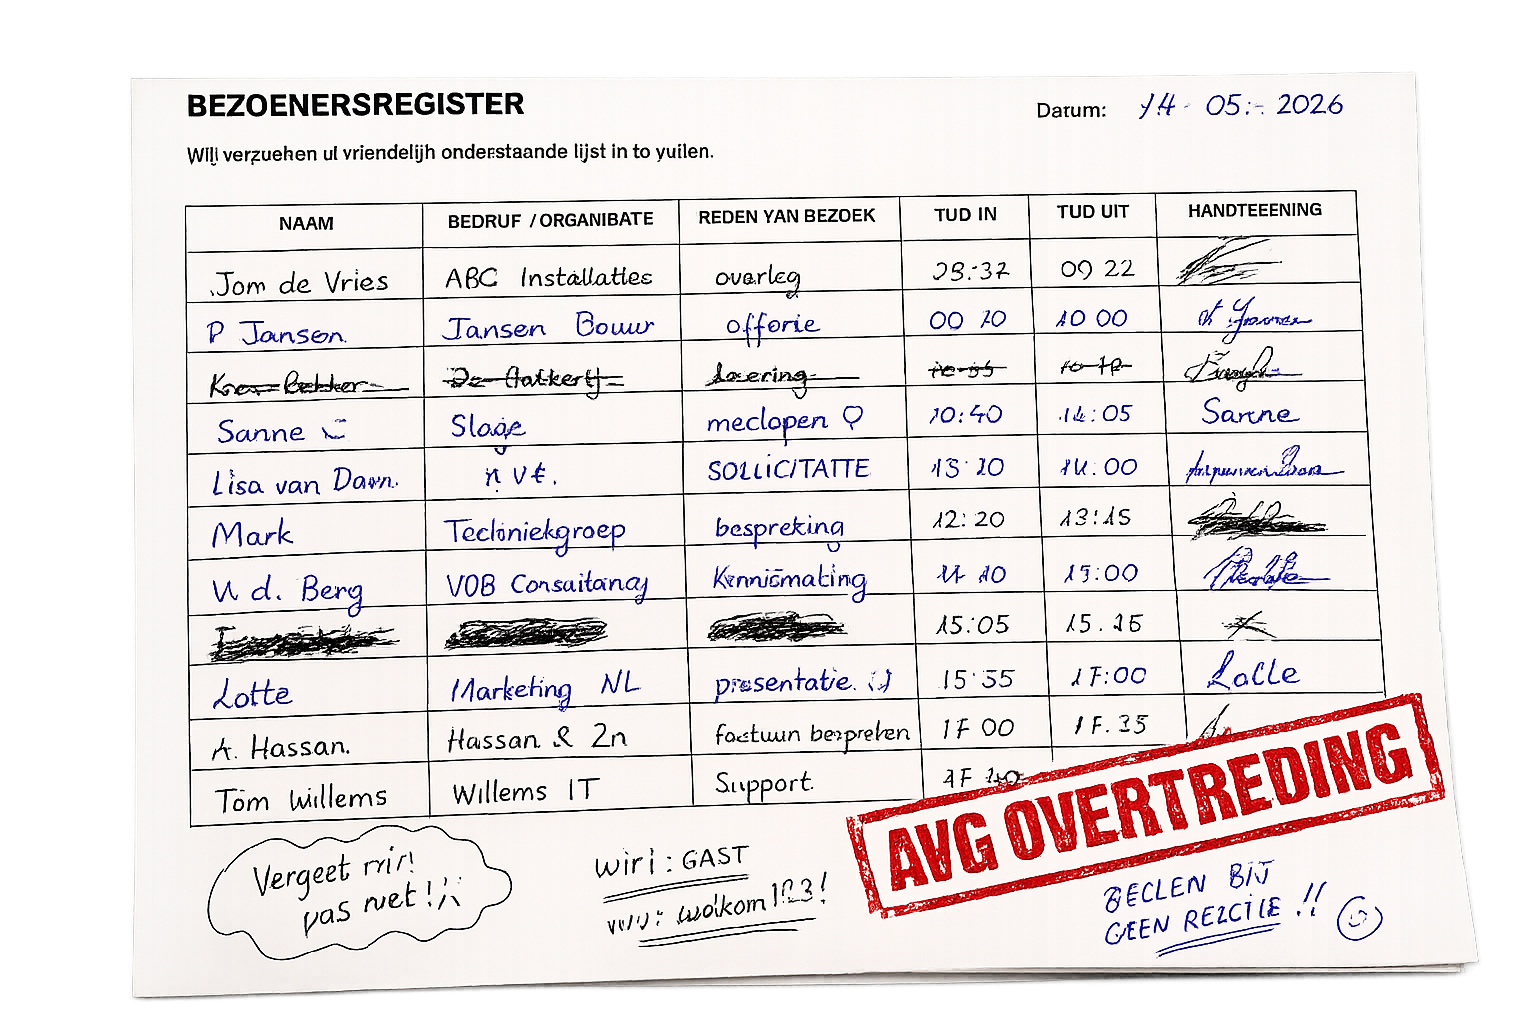 BEZOENERSREGISTER
Datum: 14 - 05 - 2026
Wilj verzuehen ul vriendelijh onderstaande lijst in to yuilen.
NAAM BEDRUF / ORGANIBATE REDEN YAN BEZOEK TUD IN TUD UIT HANDTEEENING
Jom de Vries ABC Installaties overleg 09 22
P Jansen. Jansen Bouur offorie 00 20 10 00
Sanne Slage meclopen 10:40 14:05 Sanne
Lisa van Dawn. n v t. SOLLICITATTE 13 20 14.00
Mark Techniekgroep bespreking 12:20 13:15
V. d. Berg VOB Consultancy Kennismating 11 10 15:00
15:05 15.25
Lotte Marketing NL presentatie. 15:35 17:00 Lolle
A. Hassan. Hassan & 2n factuun bezpreken 17 00 17.35
Tom Willems Willems IT Support.
AVG OVERTREDING
Vergeet mir!
pas niet!
wiri: GAST
wolkom123!
BECLEN BIJ
GEEN REZCTIE !!